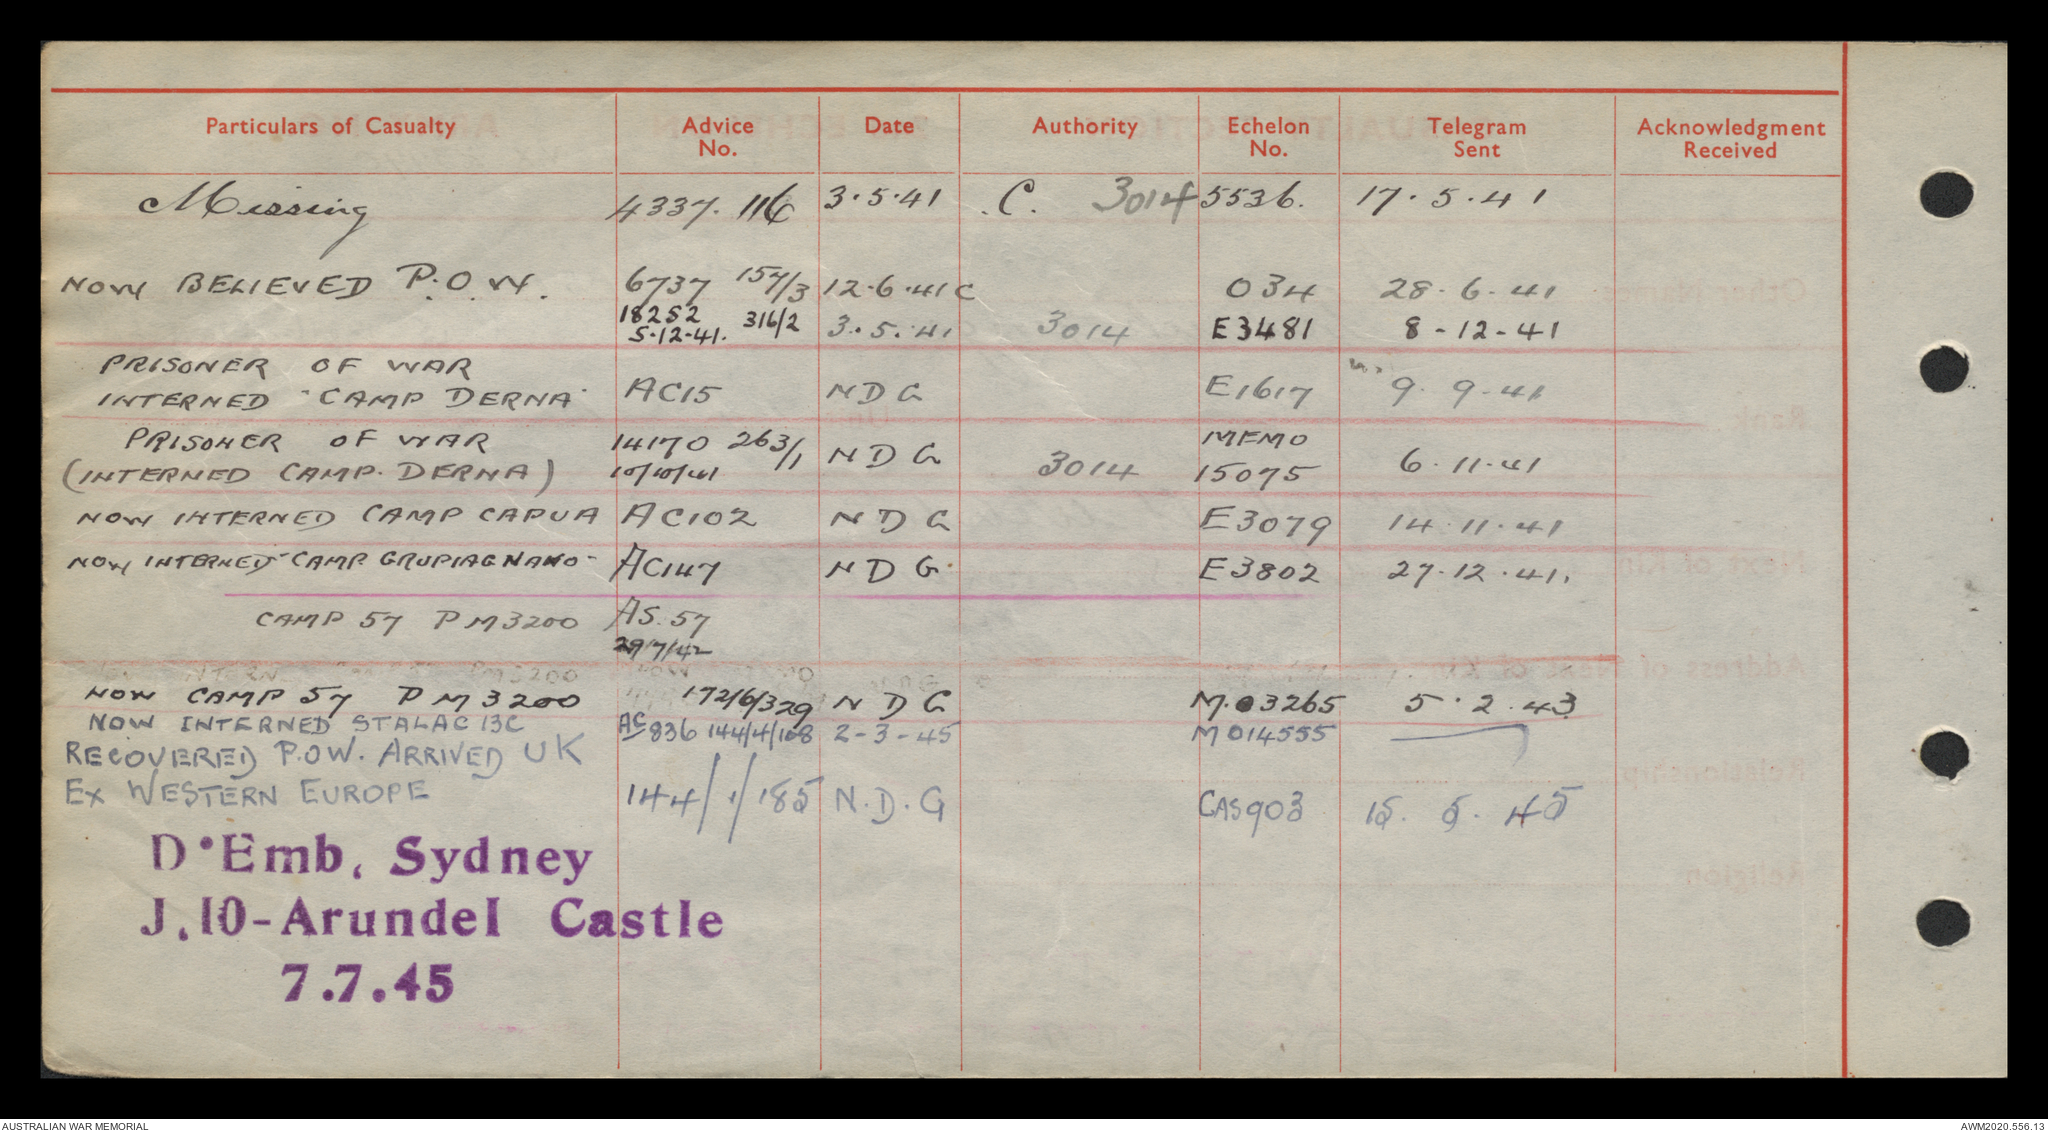 Particulars of Casualty Advice No. Date Authority Echelon No. Telegram Sent Acknowledgment Received
Missing 4337. 116 3.5.41 .C. 3014 5536. 17.5.41
NOW BELIEVED P.O.W. 6737 157/3 12.6.41 C 034 28.6.41
18252 5.12.41. 316/2 3.5.41 3014 E3481 8-12-41
PRISONER OF WAR
INTERNED "CAMP DERNA" AC15 NDG E1617 9.9.41
PRISONER OF WAR 14170 263/1 NDG MEMO
(INTERNED CAMP. DERNA) 10/10/41 3014 15075 6.11.41
NOW INTERNED CAMP CAPUA AC102 NDG E3079 14.11.41
NOW INTERNED "CAMP GRUPIAGNANO" AC147 NDG. E3802 27.12.41.
CAMP 57 PM3200 AS.57
29/7/42
PM3200
NOW CAMP 57 PM3200 172/6/329 NDG M.03265 5.2.43
NOW INTERNED STALAG 13C AC836 144/4/108 2-3-45 M014555
RECOVERED P.OW. ARRIVED UK
EX WESTERN EUROPE 144/1/185 N.D.G CAS903 15.5.45
D'Emb. Sydney
J.10-Arundel Castle
7.7.45
AUSTRALIAN WAR MEMORIAL AWM2020.556.13